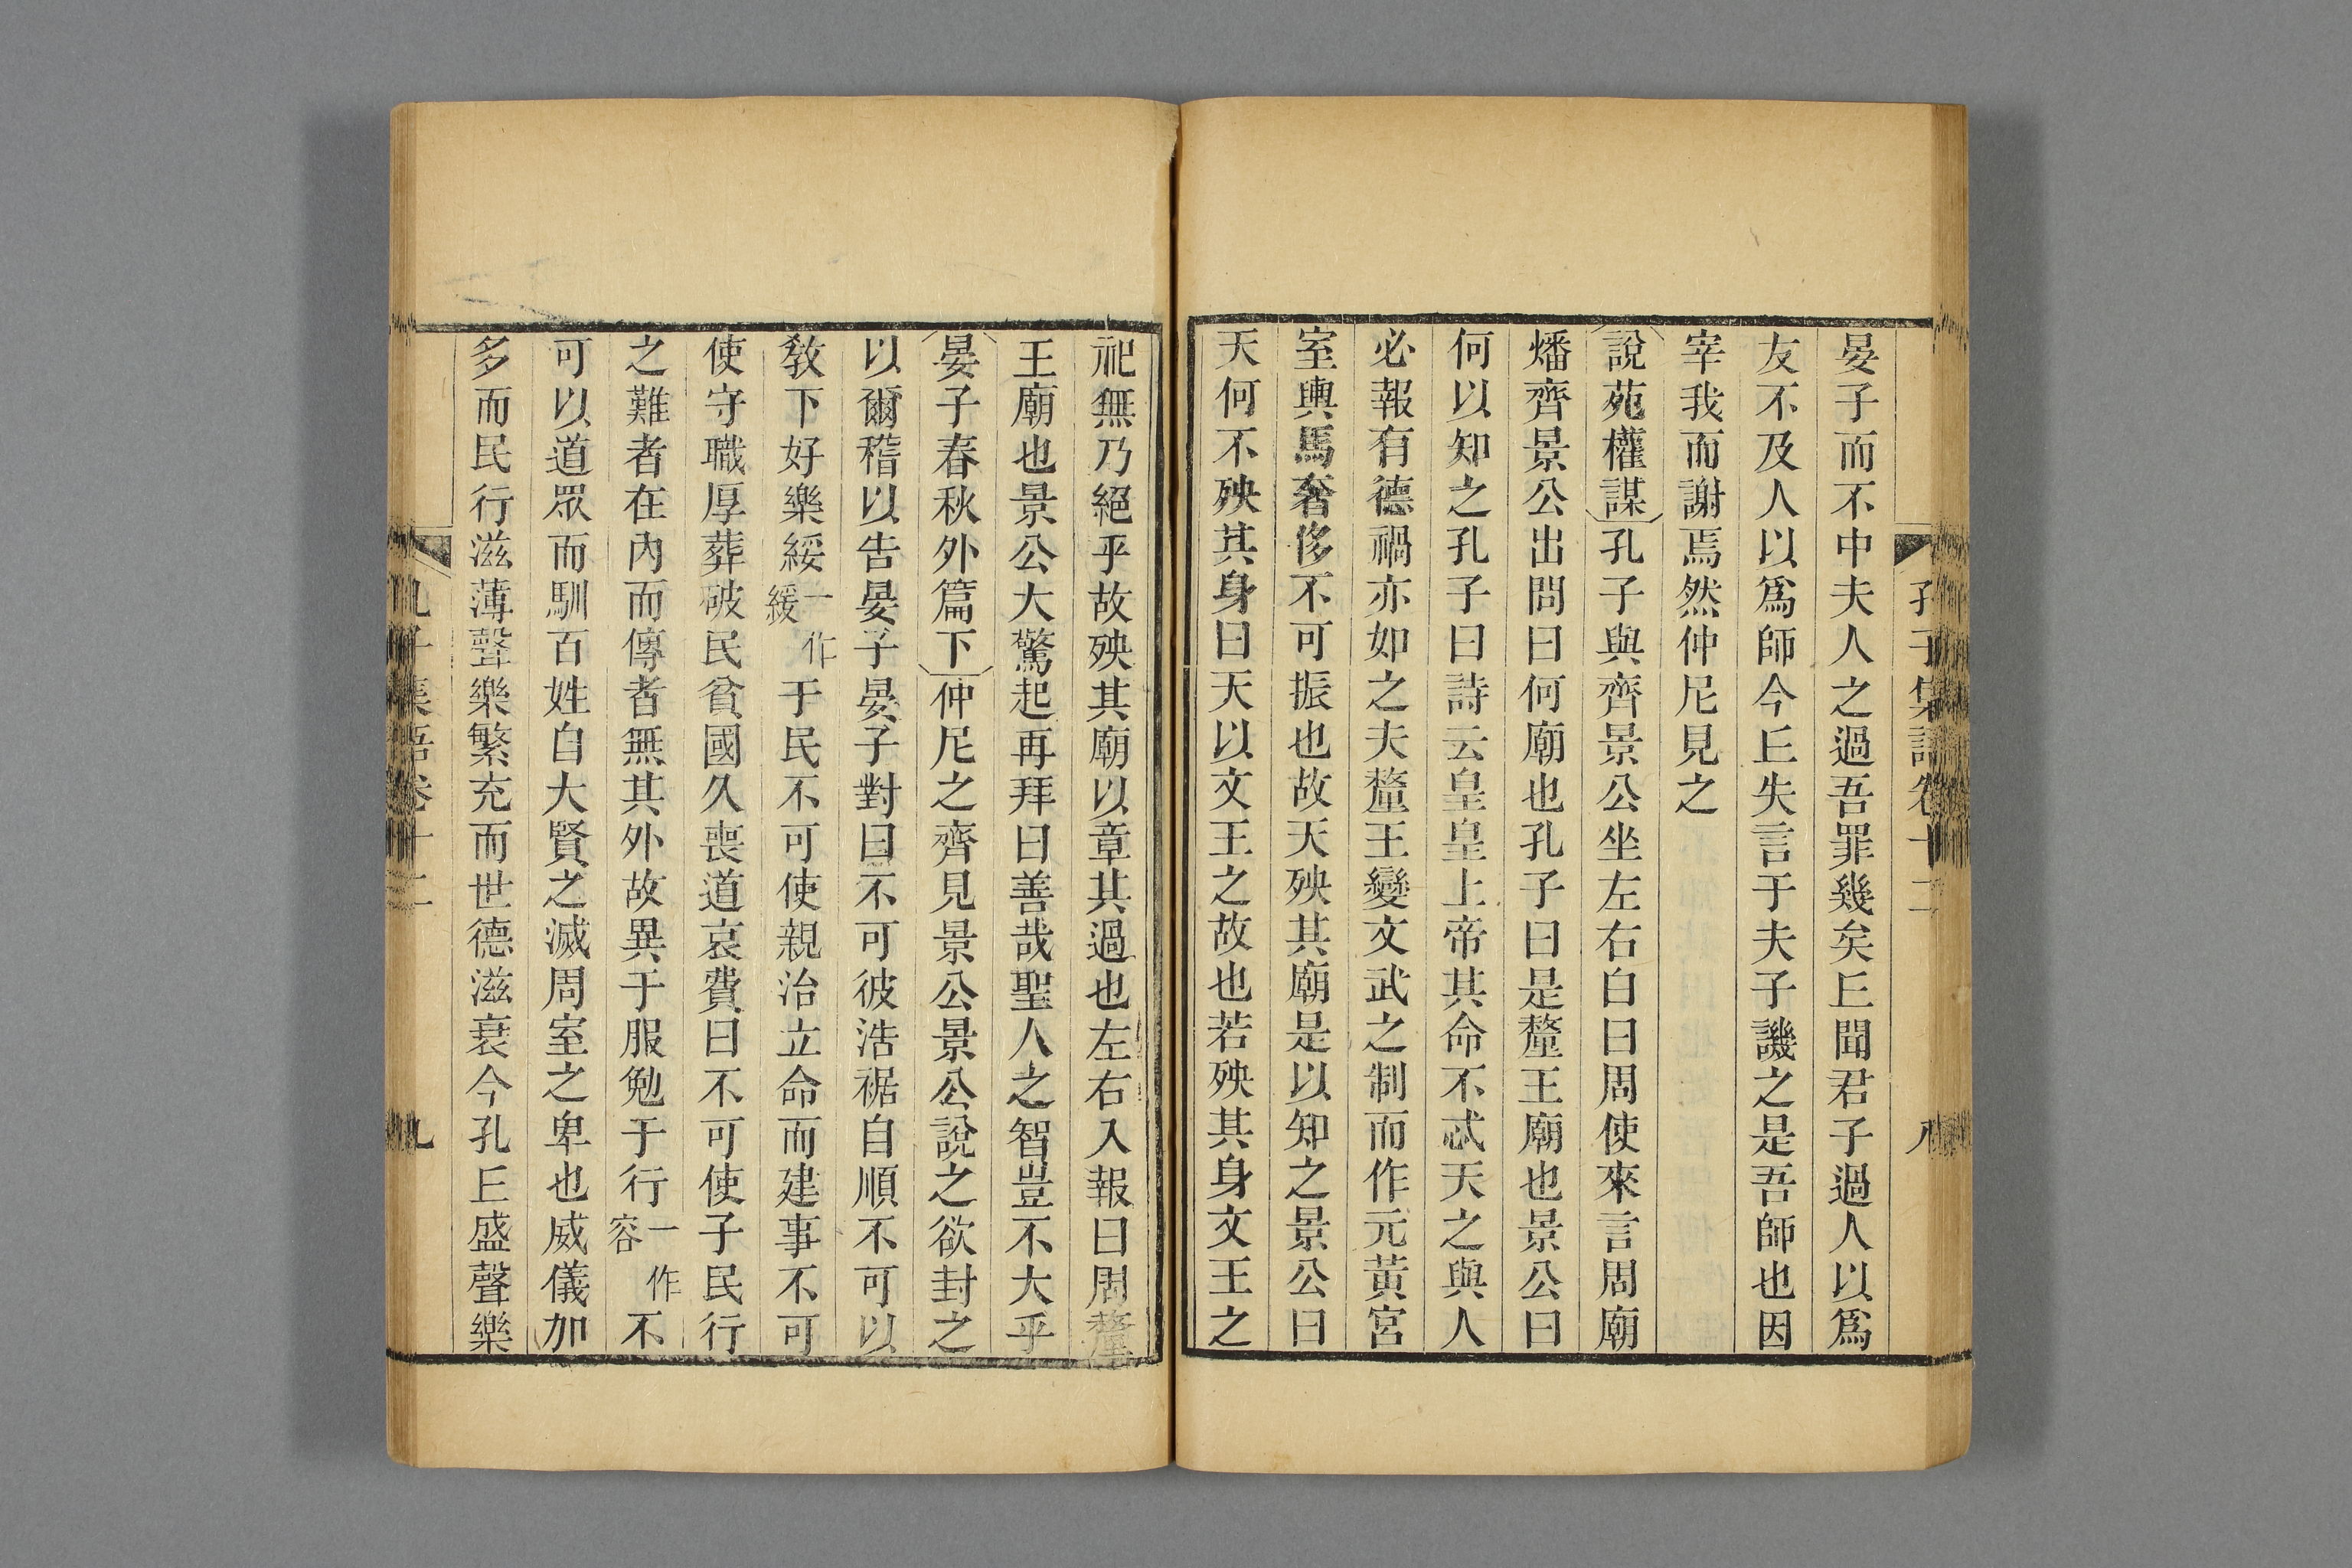 孔子集語卷十二 八
晏子而不中夫人之過吾罪幾矣𠀉聞君子過人以爲
友不及人以爲師今𠀉失言于夫子譏之是吾師也因
宰我而謝焉然仲尼見之
說苑權謀孔子與齊景公坐左右白曰周使來言周廟
燔齊景公出問曰何廟也孔子曰是釐王廟也景公曰
何以知之孔子曰詩云皇皇上帝其命不忒天之與人
必報有德禍亦如之夫釐王變文武之制而作元黃宮
室輿馬奢侈不可振也故天殃其廟是以知之景公曰
天何不殃其身曰天以文王之故也若殃其身文王之
祀無乃絕乎故殃其廟以章其過也左右入報曰周釐
王廟也景公大驚起再拜曰善哉聖人之智豈不大乎
晏子春秋外篇下仲尼之齊見景公景公說之欲封之
以爾稽以告晏子晏子對曰不可彼浩裾自順不可以
敎下好樂綏一作緩于民不可使親治立命而建事不可
使守職厚葬破民貧國久喪道哀費日不可使子民行
之難者在內而傳者無其外故異于服勉于行一作容不
可以道眾而馴百姓自大賢之滅周室之卑也威儀加
多而民行滋薄聲樂繁充而世德滋衰今孔𠀉盛聲樂
孔子集語卷十二 九